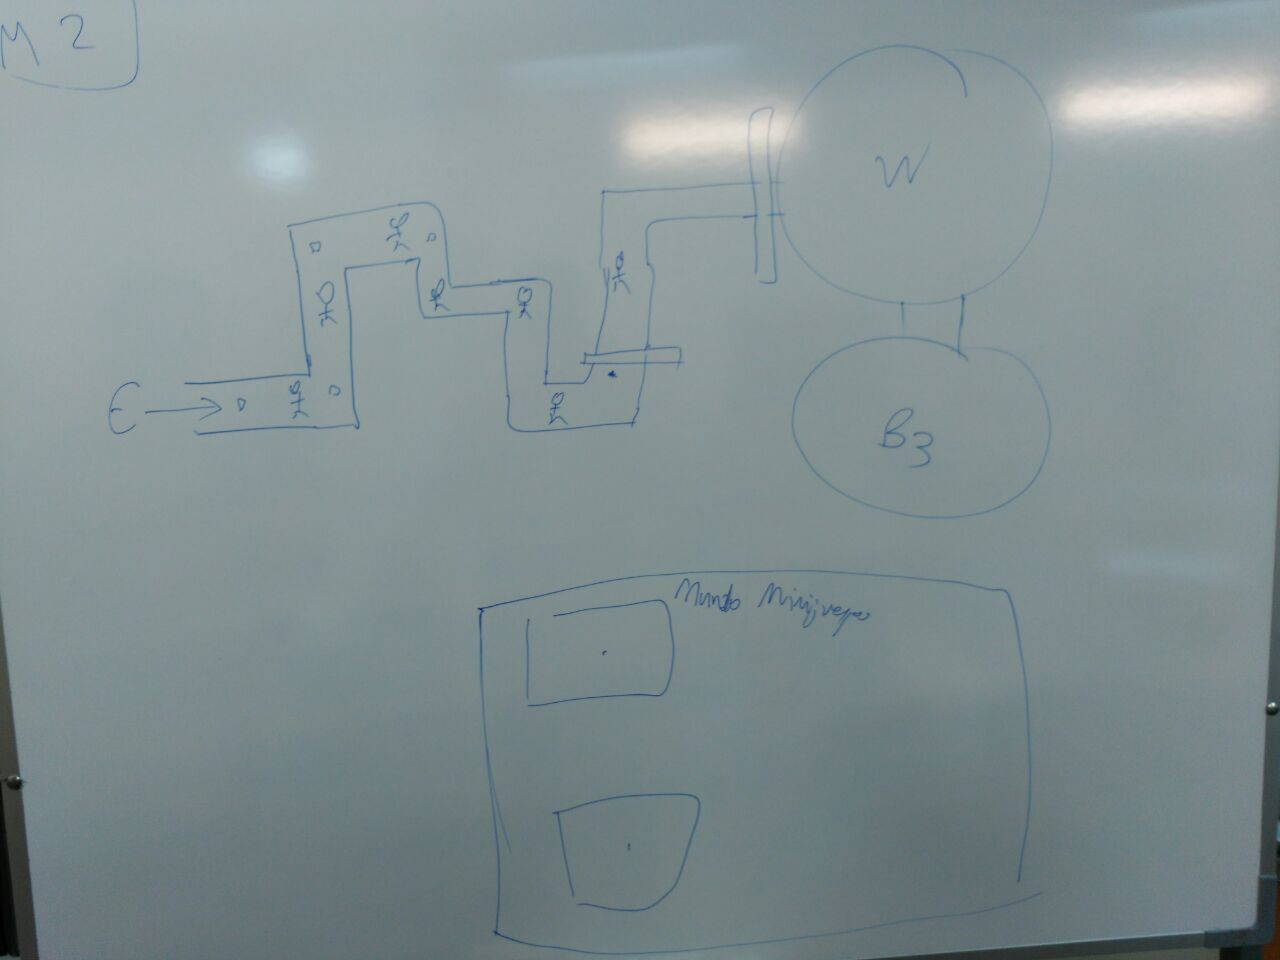 M 2
W
E
B3
Mundo Minijuegos